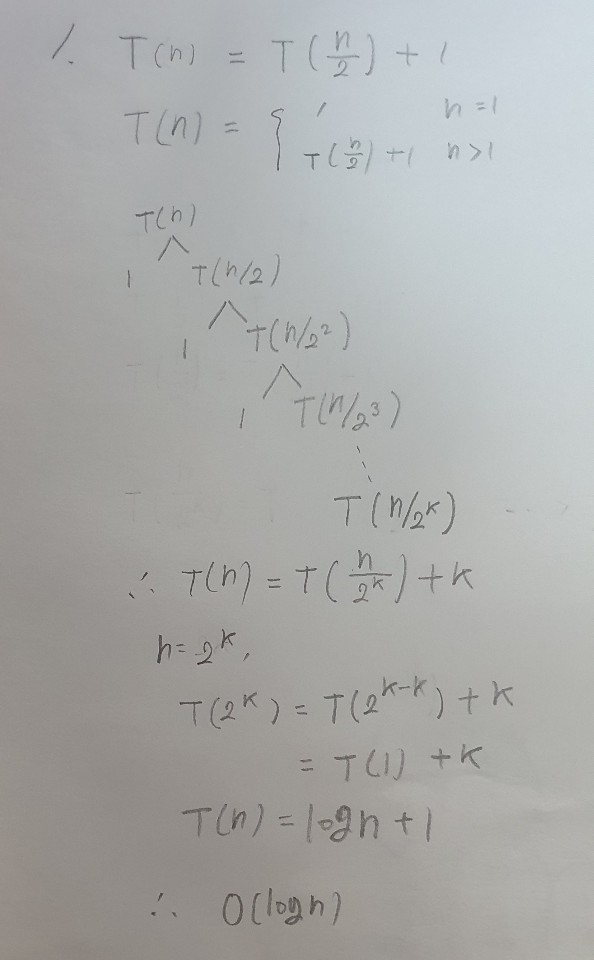 1. T(n) = T(n/2) + 1
T(n) = { 1 n=1
T(n/2) + 1 n>1
T(n)
1 T(n/2)
1 T(n/2²)
1 T(n/2³)
T(n/2^k) ...
∴ T(n) = T(n/2^k) + k
n = 2^k,
T(2^k) = T(2^(k-k)) + k
= T(1) + k
T(n) = logn + 1
∴ O(logn)